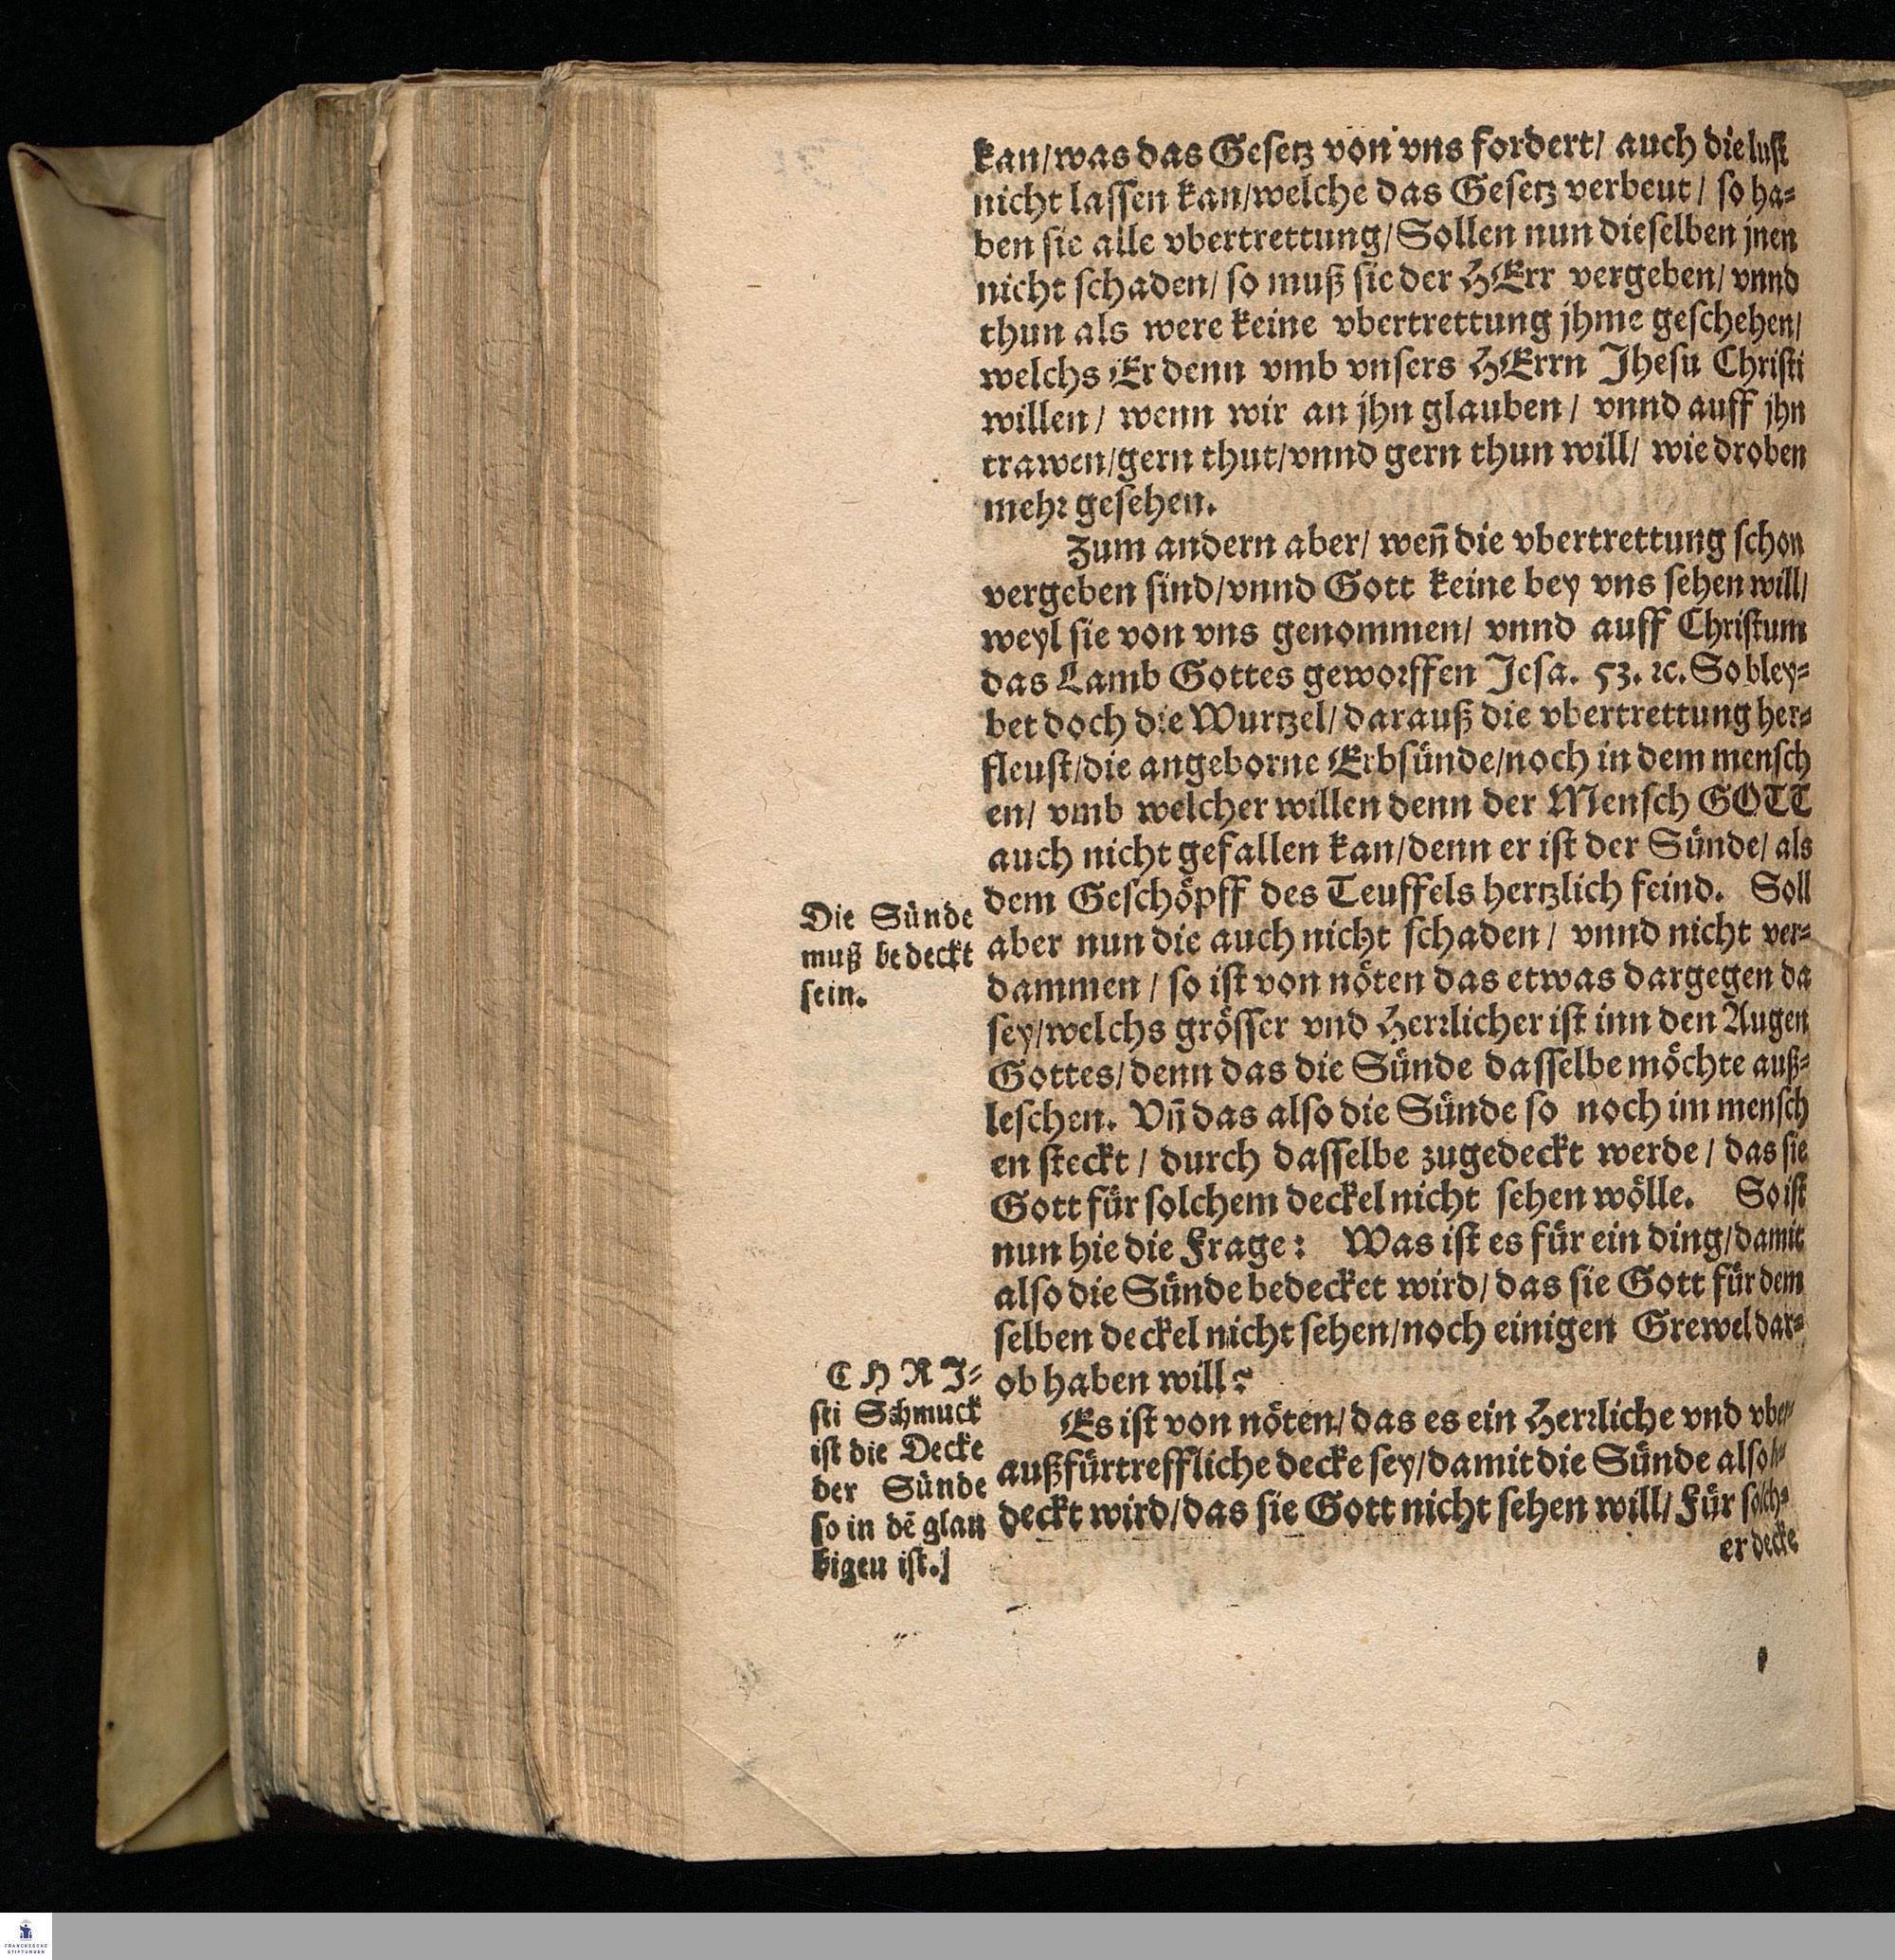 kan/was das Gesetz von vns fordert/ auch die lust
nicht lassen kan/welche das Gesetz verbeut/ so ha⸗
ben sie alle vbertrettung/Sollen nun dieselben jnen
nicht schaden/ so muß sie der HErr vergeben/ vnnd
thun als were keine vbertrettung jhme geschehen/
welchs Er denn vmb vnsers HErrn Jhesu Christi
willen/ wenn wir an jhn glauben/ vnnd auff jhn
trawen/gern thut/vnnd gern thun will/ wie droben
mehr gesehen.
Zum andern aber/ weñ die vbertrettung schon
vergeben sind/vnnd Gott keine bey vns sehen will/
weyl sie von vns genommen/ vnnd auff Christum
das Lamb Gottes geworffen Jesa. 53. ꝛc. So bley⸗
bet doch die Wurtzel/darauß die vbertrettung her⸗
fleust/die angeborne Erbsünde/noch in dem mensch
en/ vmb welcher willen denn der Mensch GOTT
auch nicht gefallen kan/denn er ist der Sünde/ als
dem Geschöpff des Teuffels hertzlich feind. Soll
aber nun die auch nicht schaden/ vnnd nicht ver⸗
dammen/ so ist von nöten das etwas dargegen da
sey/welchs grösser vnd Herrlicher ist inn den Augen
Gottes/denn das die Sünde dasselbe möchte auß⸗
leschen. Vñ das also die Sünde so noch im mensch
en steckt/ durch dasselbe zugedeckt werde/ das sie
Gott für solchem deckel nicht sehen wölle. So ist
nun hie die Frage: Was ist es für ein ding/damit
also die Sünde bedecket wird/das sie Gott für dem
selben deckel nicht sehen/noch einigen Grewel dar⸗
ob haben will?
Es ist von nöten/das es ein Herrliche vnd vber⸗
außfürtreffliche decke sey/damit die Sünde also
deckt wird/das sie Gott nicht sehen will/ Für solch⸗
er decke
Die Sünde
muß bedeckt
sein.
CHRI⸗
sti Schmuck
ist die Decke
der Sünde
so in dē glau
bigen ist.]
FRANCKESCHE
STIFTUNGEN